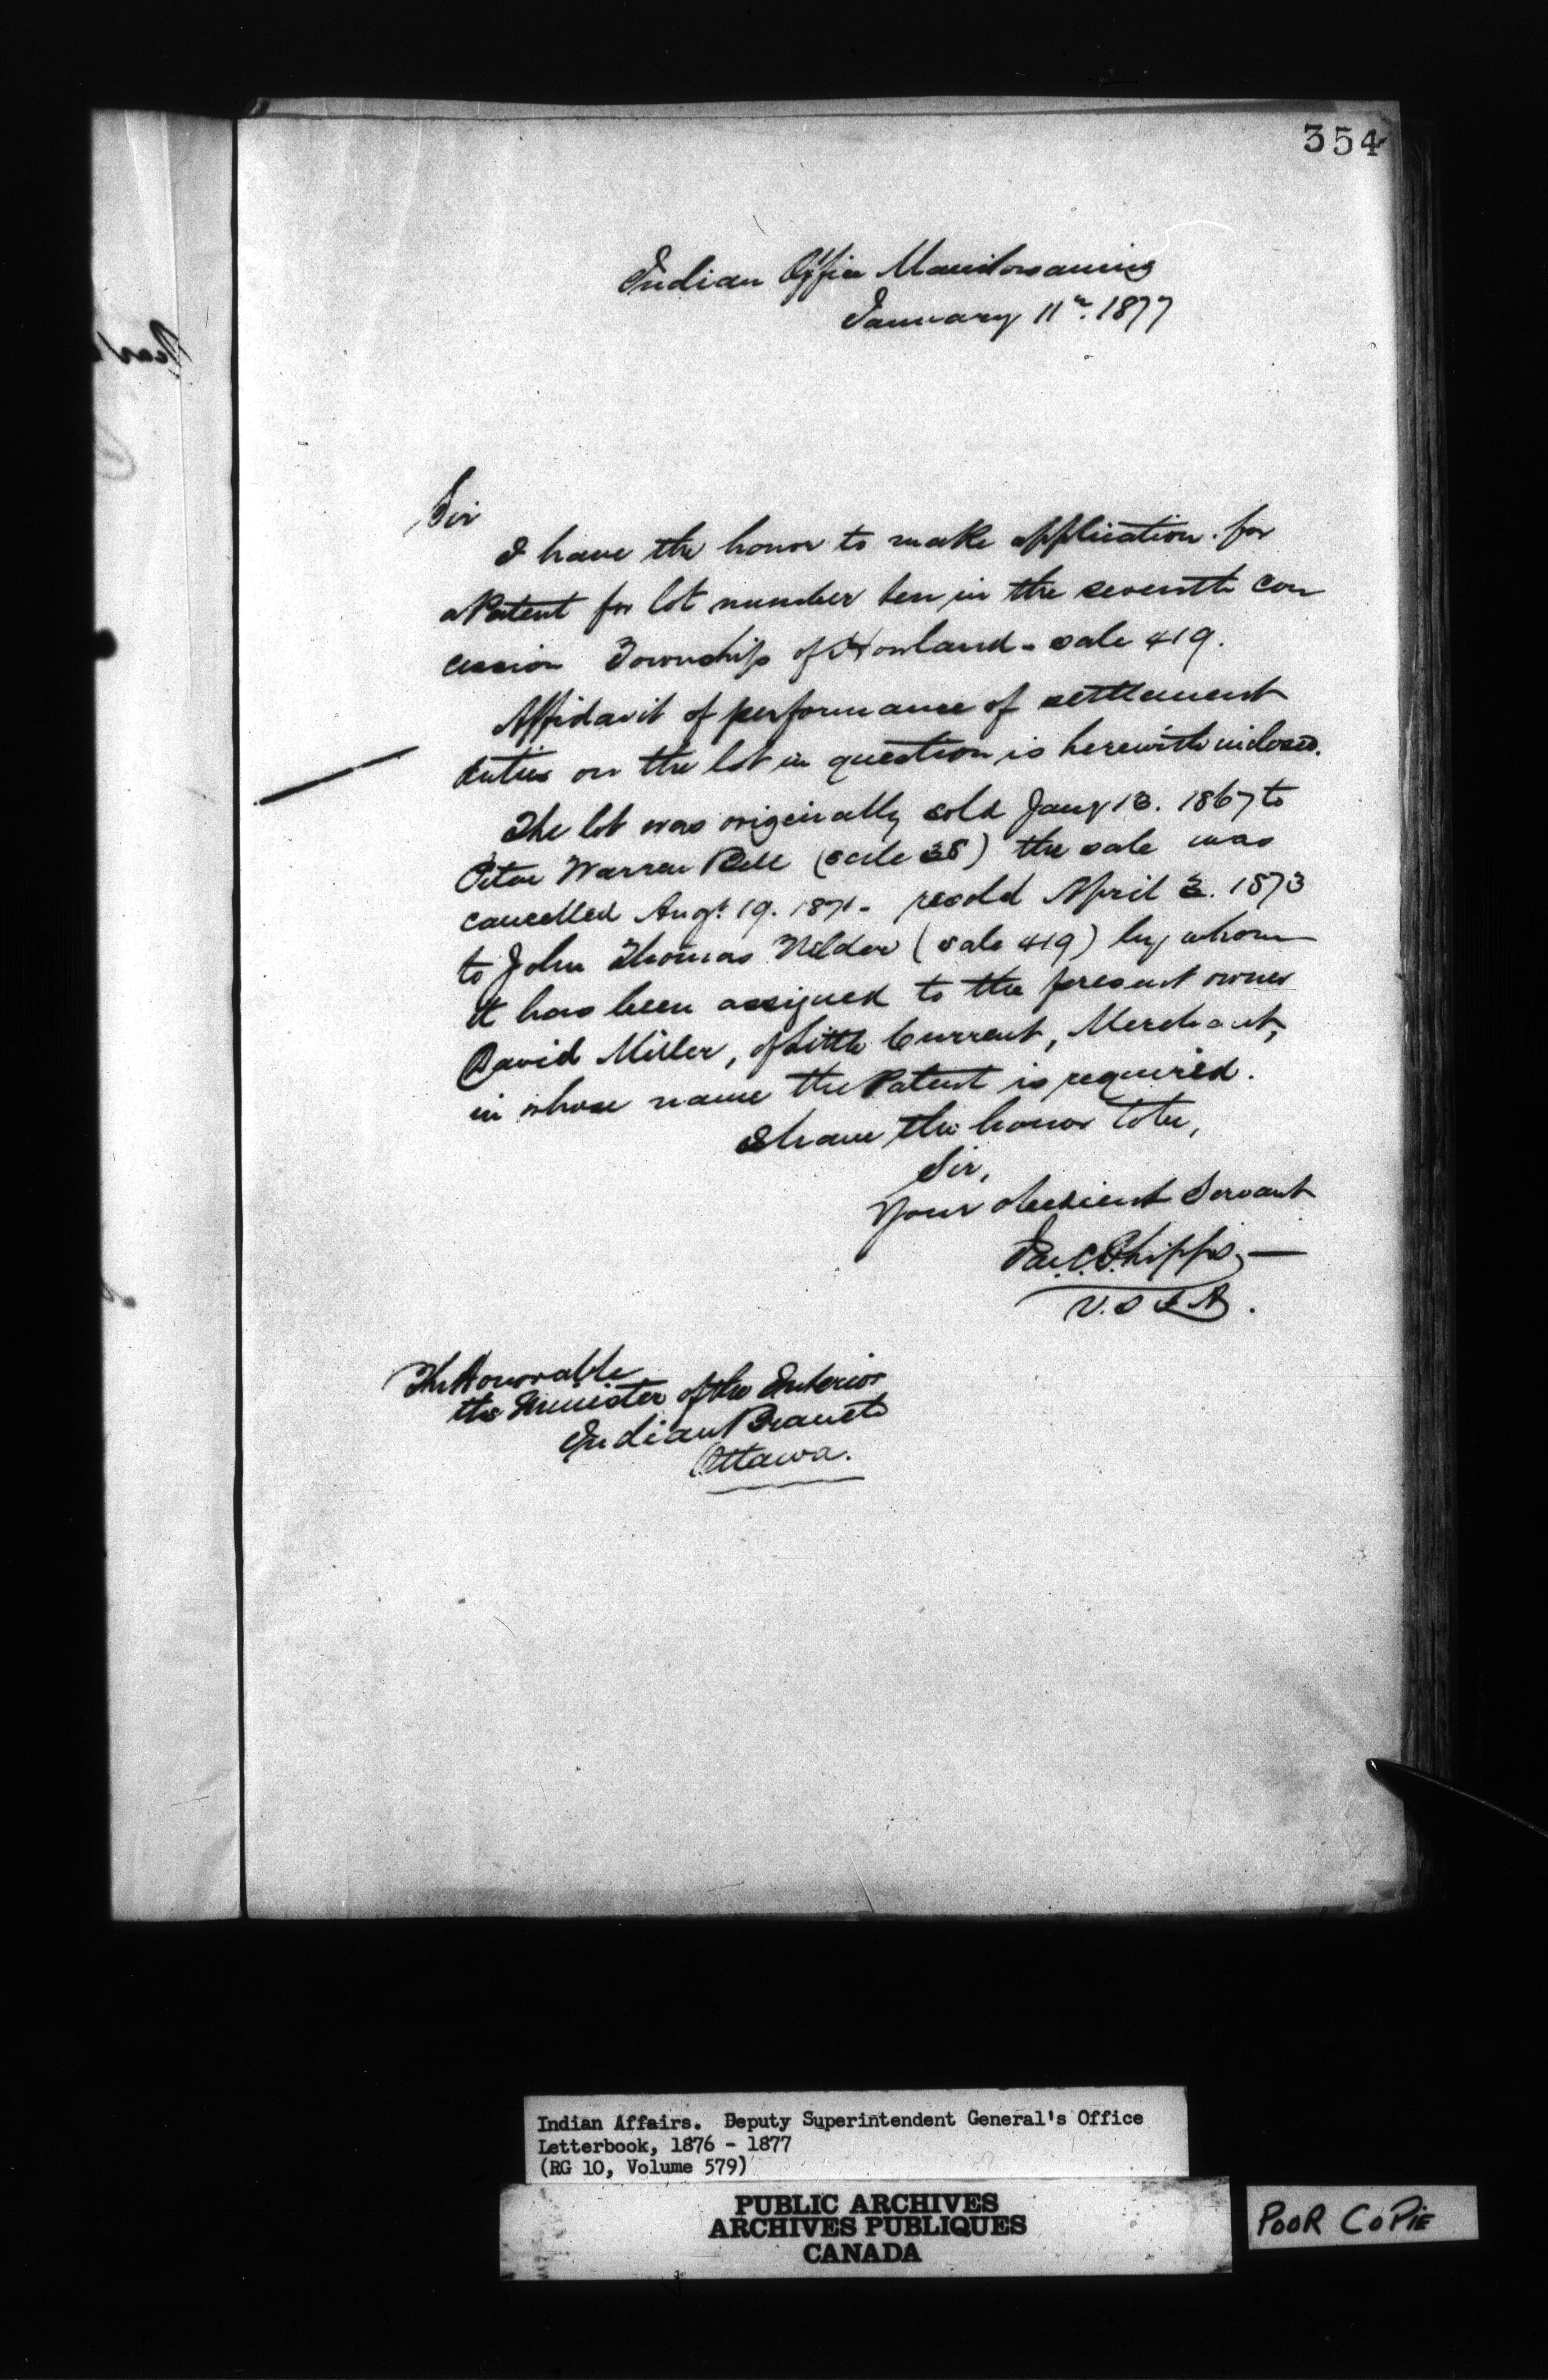 354
Indian Office Manitowaning
January 11th. 1877
Sir
I have the honor to make application for
a Patent for lot number ten in the seventh con
cession Township of Howland - sale 419.
Affidavit of performance of settlement
duties on the lot in question is herewith inclosed.
The lot was originally sold Jany 13. 1867 to
Peter Warren Bell (sale 38) the sale was
cancelled Augt. 19. 1871 - resold April 3. 1873
to John Thomas (sale 419) by whom
it has been assigned to the present owner
David Miller, of Little Current, Merchant,
in whose name the Patent is required.
I have the honor to be,
Sir,
Your obedient Servant
Jas. C. Phipps
V.S I A.
The Honorable
the Minister of the Interior
Indian Branch
Ottawa.
Indian Affairs. Deputy Superintendent General's Office
Letterbook, 1876 - 1877
(RG 10, Volume 579)
PUBLIC ARCHIVES
ARCHIVES PUBLIQUES
CANADA
POOR COPIE